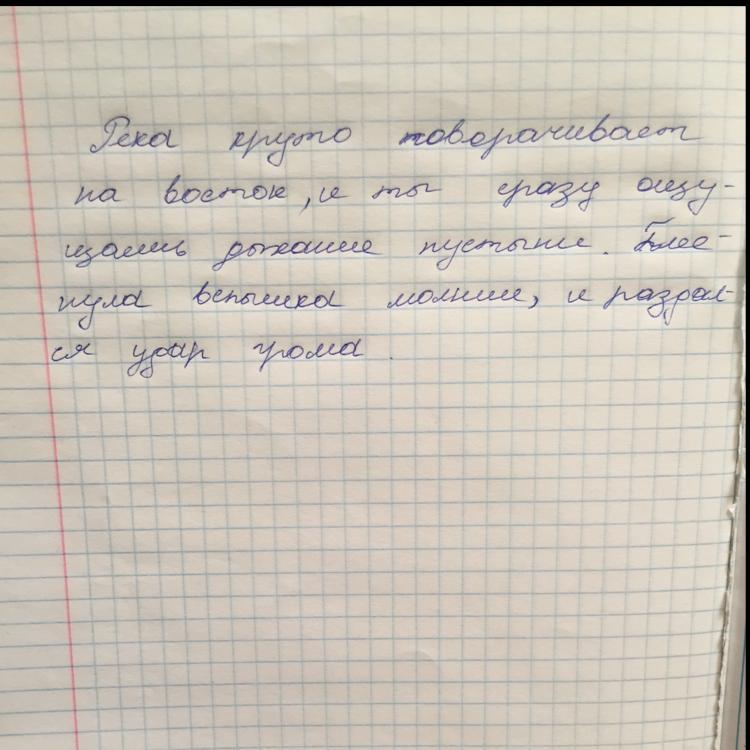 Река круто поворачивает
на восток, и ты сразу ощу-
щаешь дыхание пустыни. Блес-
нула вспышка молнии, и раздал-
ся удар грома.